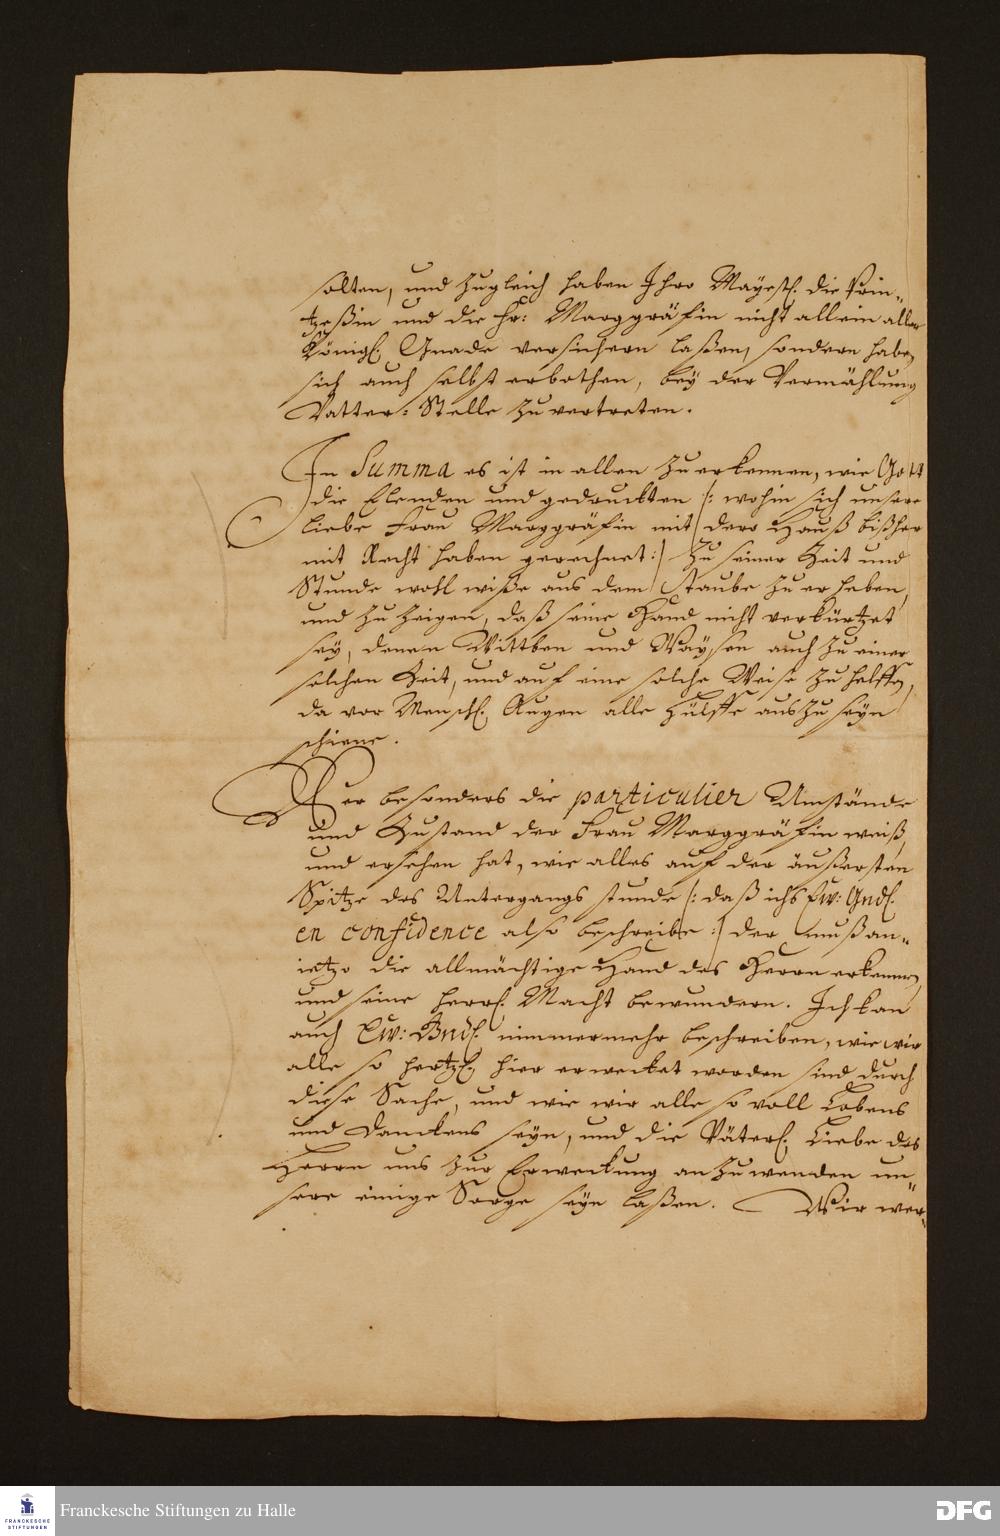 solten, und zugleich haben Ihro Mayest. die Prin-
tzeßin und die Fr: Marggräfin nicht allein aller
Königl. Gnade versichern laßen, sondern haben
sich auch selbst erbothen, bey der Vermählung
Vatter-Stelle zu vertreten.
In Summa es ist in allen zu erkennen, wie Gott
die Elenden und gedruckten /: wohin sich unsere
liebe Frau Marggräfin mit dero Hauß bißher
mit Recht haben gerechnet :/ zu seiner Zeit und
Stunde wohl wiße aus dem Staube zu erheben,
und zu zeigen, daß seine Hand nicht verkürtzet
sey, denen Wittben und Waysen auch zu einer
solchen Zeit, und auf eine solche Weise zu helffen,
da vor Menschl. Augen alle Hülffe aus zu seyn
schiene.
Wer besonders die particulier Umstände
und Zustand der Frau Marggräfin weiß,
und ersehen hat, wie alles auf der äußersten
Spitze des Untergangs stunde /: daß ichs Ew: Gnd.
en confidence also beschreibe :/ der muß an-
ietzo die allmächtige Hand des Herrn erkennen,
und seine herrl. Macht bewundern. Ich kan
auch Ew: Gnd. nimmermehr beschreiben, wie wir
alle so hertzl. hier erwecket worden sind durch
diese Sache, und wie wir alle so voll Lobens
und Danckens seyn, und die Väterl. Liebe des
Herrn uns zur Erweckung anzuwenden un-
sere einige Sorge seyn laßen. Wir wer-
Franckesche Stiftungen zu Halle
FRANCKESCHE
STIFTUNGEN
DFG